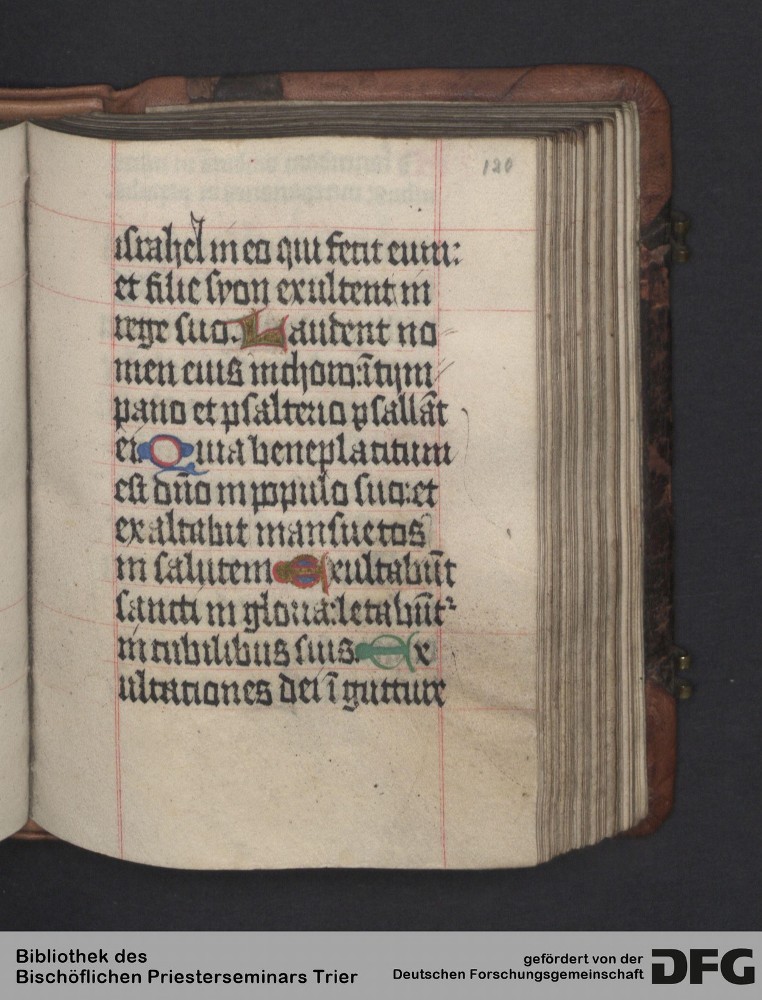 120
israhel in eo qui fecit eum:
et filie syon exultent in
rege suo. Laudent no
men eius in choro: ī tym
pano et psalterio psallāt
ei. Quia beneplacitum
est dn̄o in populo suo: et
exaltabit mansuetos
in salutem Exultabūt
sancti in gloria: letabūt᷑
in cubilibus suis. Ex
ultationes dei ī gutture
Bibliothek des
Bischöflichen Priesterseminars Trier
gefördert von der
Deutschen Forschungsgemeinschaft
DFG